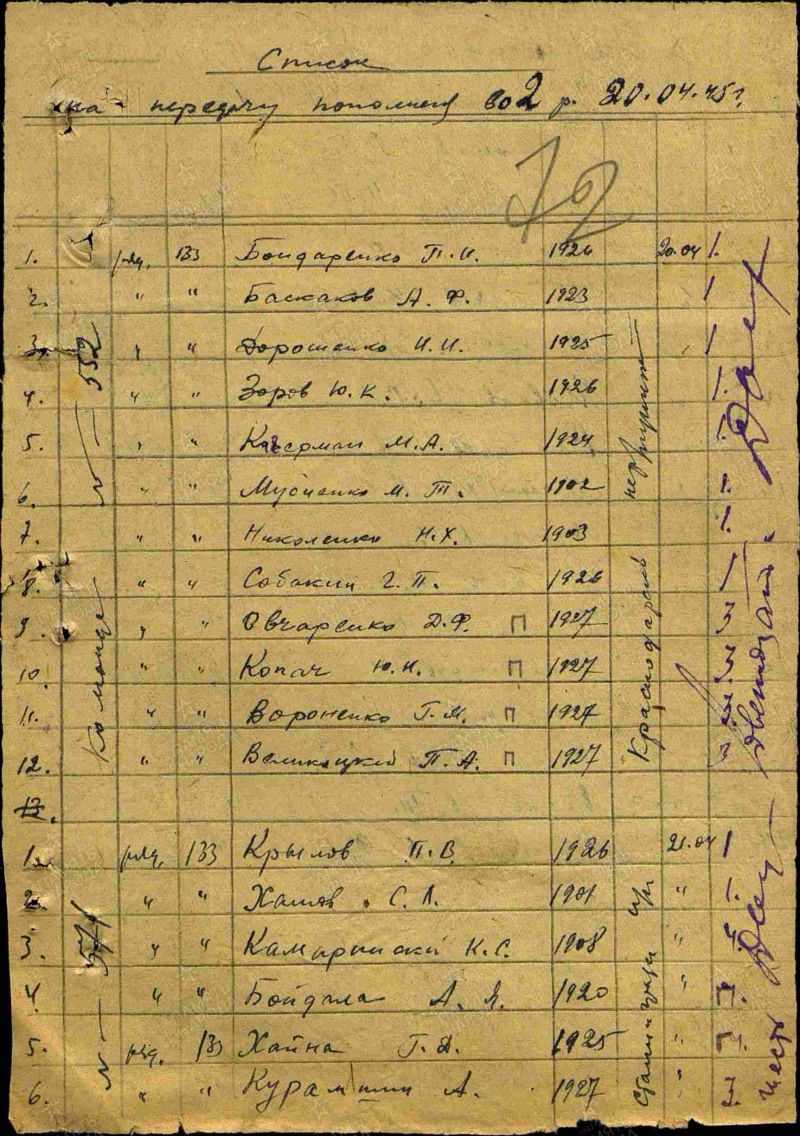 Список
на передачу пополнения во 2 р. 20.04.45 г.
72
1. ряд. 133 Бондаренко П.И. 1926 20.04 1.
2. " " Баскаков А.Ф. 1923 1
3. " " Дорошенко И.И. 1925 1
4. " " Зоров Ю.К. 1926 1.
5. " " М.А. 1924
6. " " М.Т. 1902
7. " " Николенко Н.Х. 1903 1.
8. " " Собакин Г.П. 1926 1
9. " " Овчаренко Д.Ф. П 1927 3
10. " " Копач Ю.И. П 1927 3
11. " " Вороненко Г.М. П 1927
12. " " Великоцкий П.А. П 1927 3
13.
1. ряд. 133 Крылов П.В. 1926 21.04 1
2. " " С.Л. 1901 " 1
3. " " К.С. 1908 "
4. " " Бойдала А.Я. 1920 " П.
5. ряд. 133 Хайна Г.Д. 1925 " П.
6. " " Курамшин А. 1927 " 3.
Команда N — 532
N — 571
Краснодарск
двенадцать.
шесть